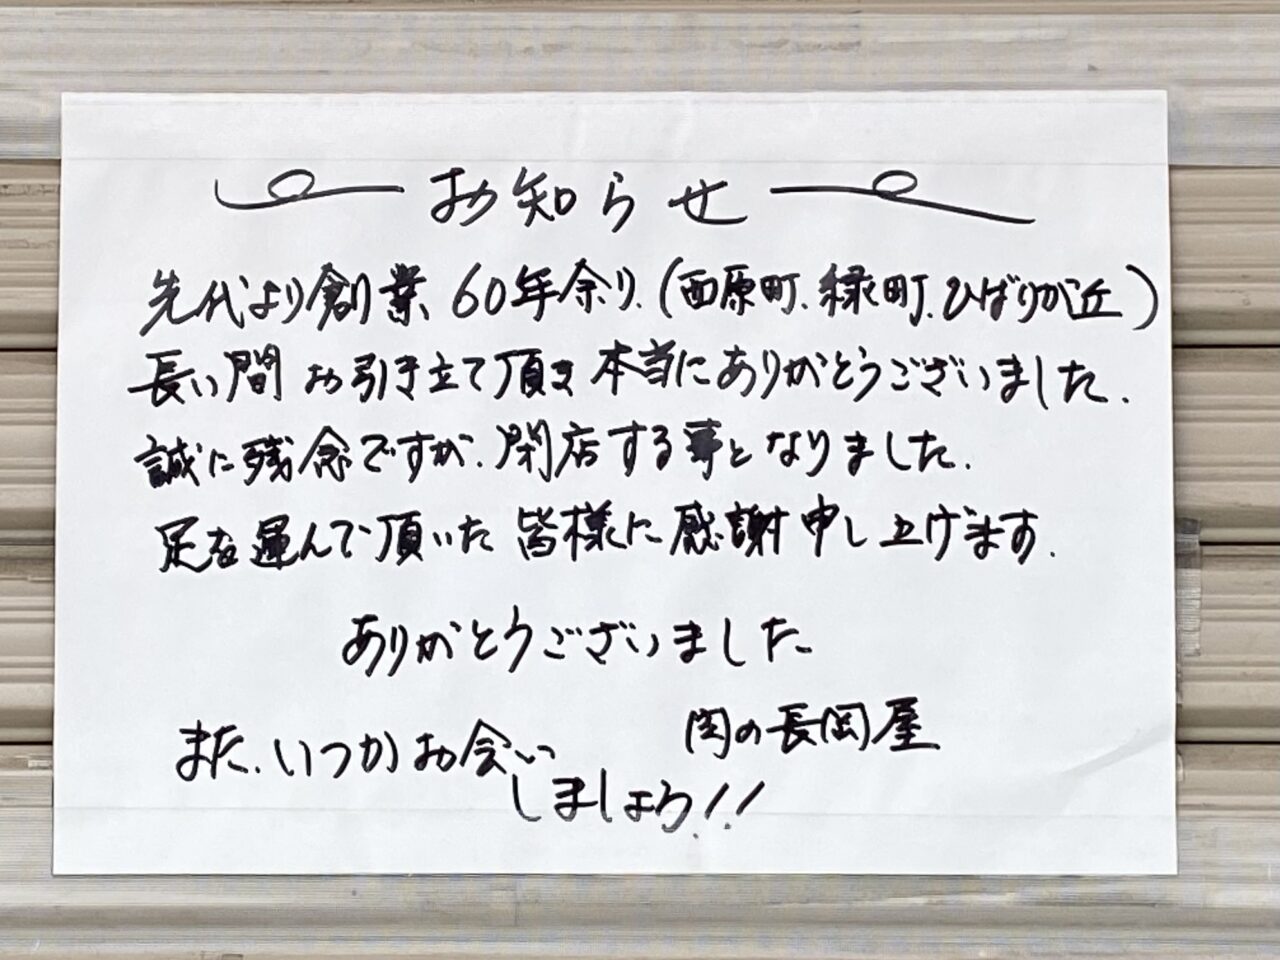 お知らせ
先代より創業60年余り.(西原町.緑町.ひばりが丘)
長い間お引き立て頂き本当にありがとうございました.
誠に残念ですが.閉店する事となりました.
足を運んで頂いた皆様に感謝申し上げます.
ありがとうございました
肉の長岡屋
また.いつかお会い
しましょう!!